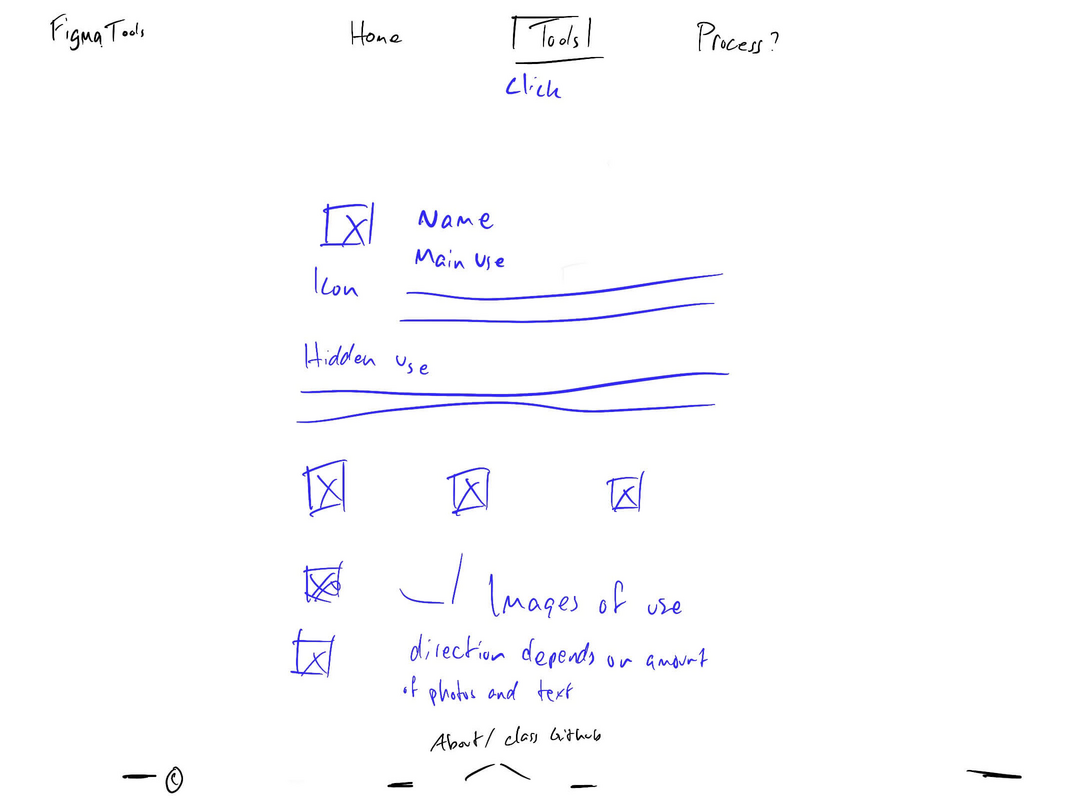 Figma Tools Home Tools Process?
Click
Name
Main Use
Icon
Hidden use
Images of use
direction depends on amount
of photos and text
About/ class Github
©